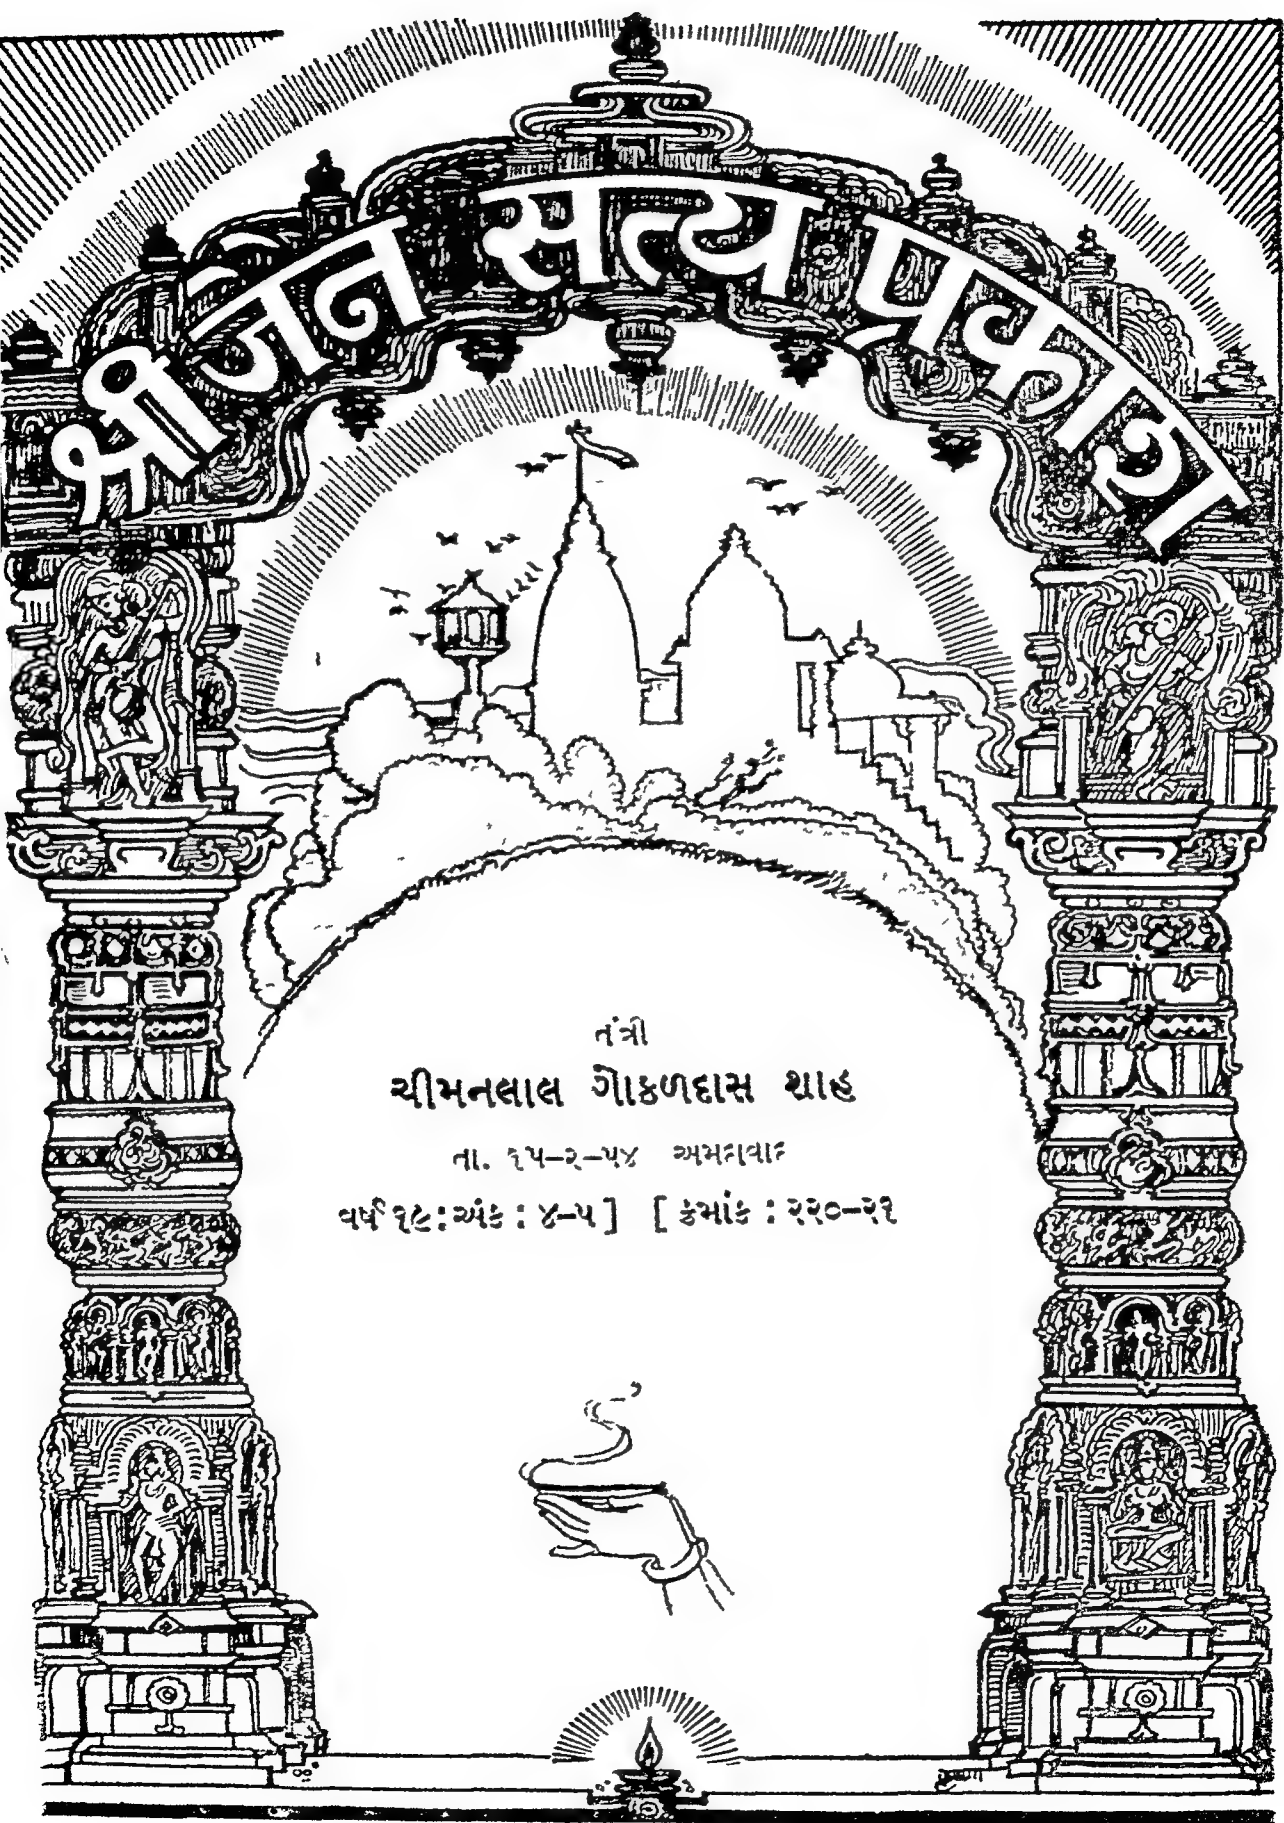 श्री जैन सत्य प्रकाश
તંત્રી
ચીમનલાલ ગોકળદાસ શાહ
તા. ૧૫-૨-૫૪ અમદાવાદ
વર્ષ ૧૯ : અંક : ૪-૫ ] [ ક્રમાંક : ૨૨૦-૨૧